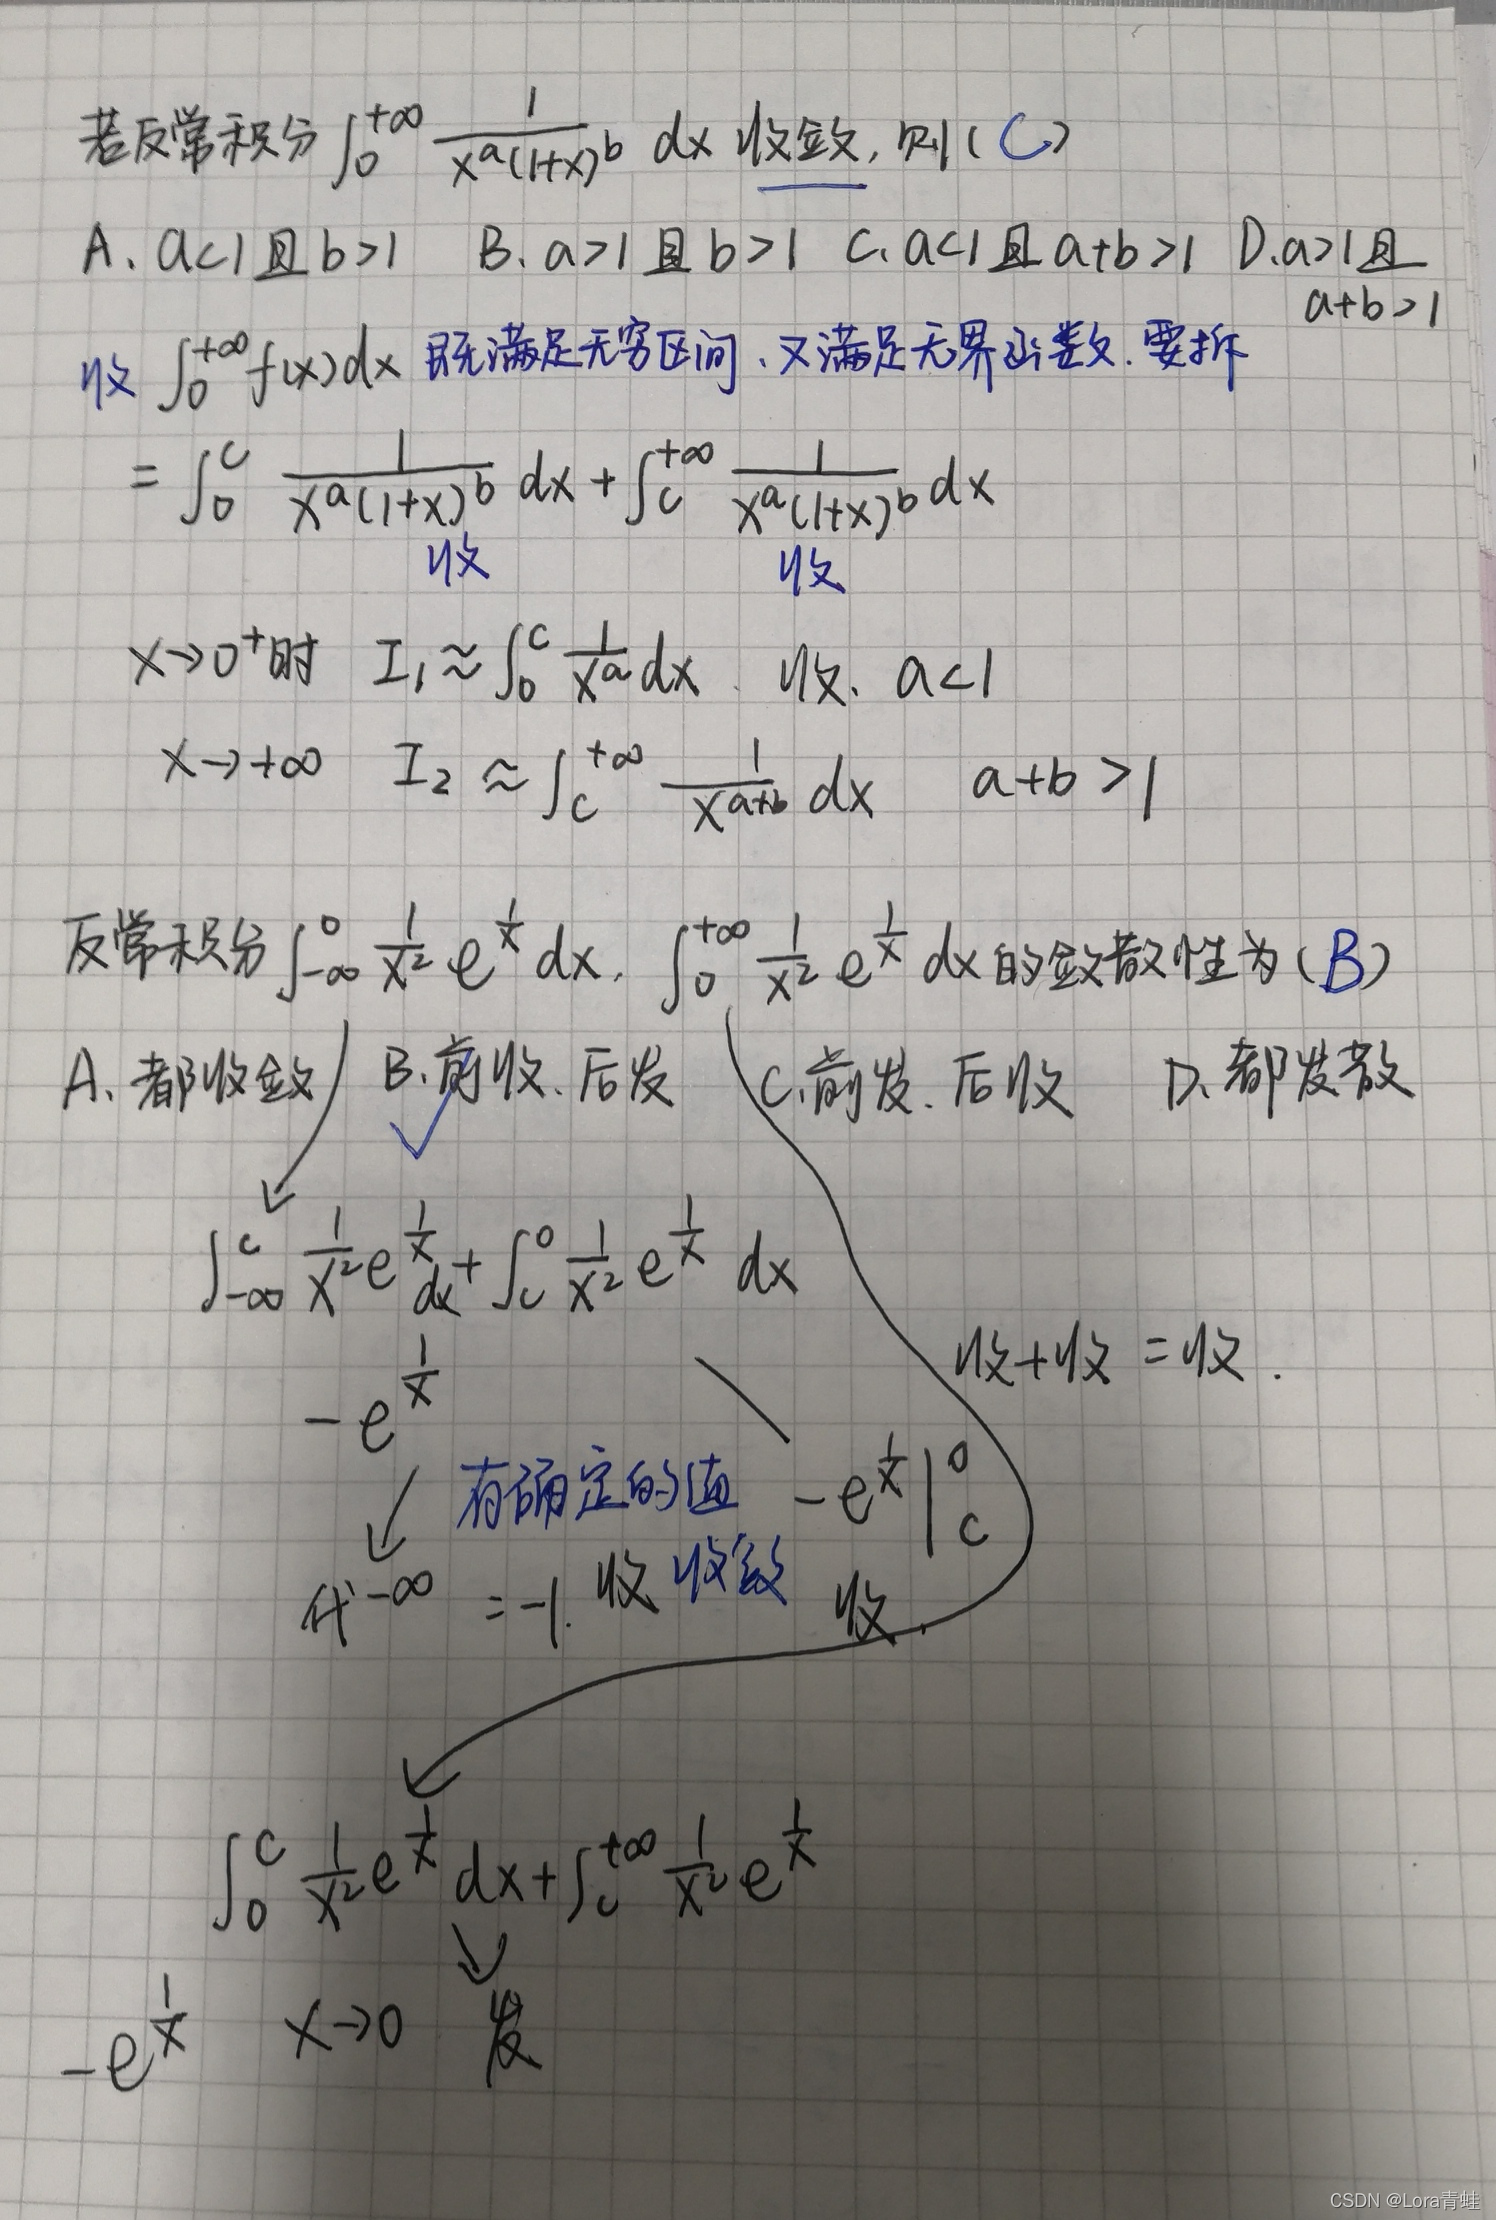 若反常积分 ∫₀^{+∞} 1/(x^a(1+x)^b) dx 收敛,则(C)
A. a<1且b>1 B. a>1且b>1 C. a<1且a+b>1 D. a>1且a+b>1
收 ∫₀^{+∞} f(x)dx 既满足无穷区间、又满足无界函数.要拆
= ∫₀^c 1/(x^a(1+x)^b) dx + ∫_c^{+∞} 1/(x^a(1+x)^b) dx
收 收
x→0⁺时 I₁ ≈ ∫₀^c 1/x^a dx 收. a<1
x→+∞ I₂ ≈ ∫_c^{+∞} 1/x^{a+b} dx a+b>1
反常积分 ∫_{-∞}^0 1/x² e^{1/x} dx, ∫₀^{+∞} 1/x² e^{1/x} dx 的敛散性为(B)
A. 都收敛 B. 前收.后发 C. 前发.后收 D. 都发散
∫_{-∞}^c 1/x² e^{1/x} dx + ∫_c^0 1/x² e^{1/x} dx
收+收=收.
-e^{1/x}
有确定的值 -e^{1/x}|_c^0
代-∞ =-1. 收 收敛 收.
∫₀^c 1/x² e^{1/x} dx + ∫_c^{+∞} 1/x² e^{1/x}
-e^{1/x} x→0 发
CSDN @Lora青蛙